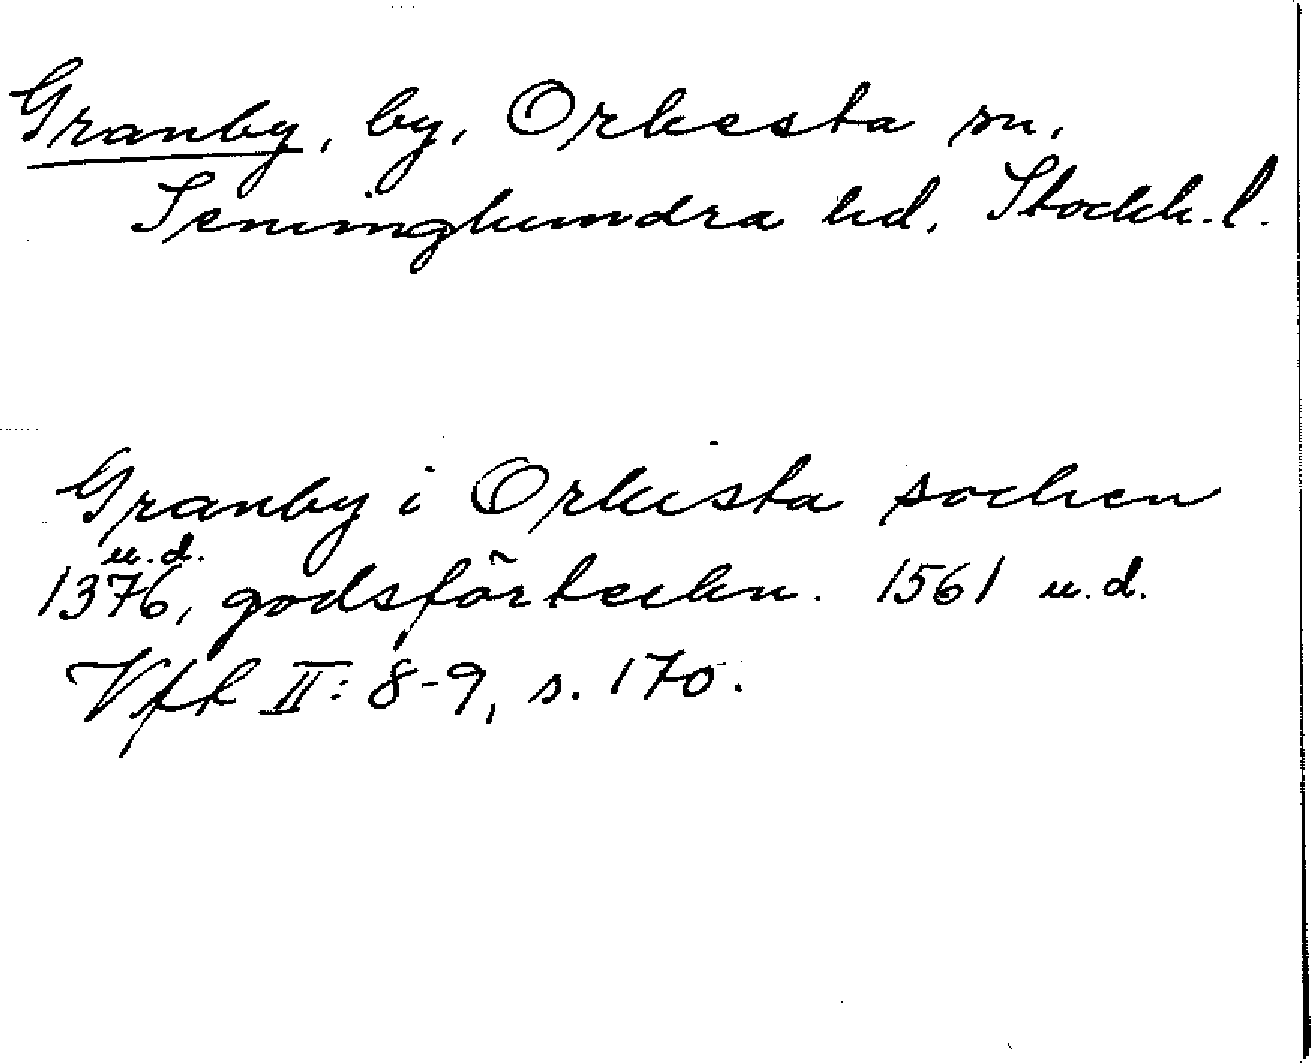 Granby, by, Orkesta sn,
Seminghundra hd, Stockh. l.
Granby i Orkista sochen
u.d.
1376, godsförteckn. 1561 u.d.
Vfl II: 8-9, s. 170.